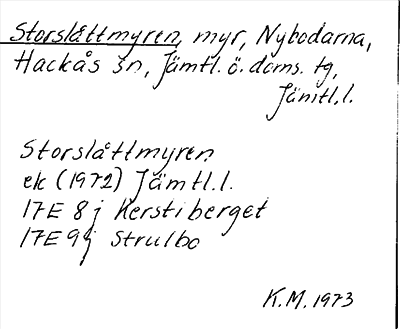 Storslåttmyren, myr, Nybodarna,
Hackås sn, Jämtl. ö. doms. tg,
Jämtl.l.
Storslåttmyren
ek (1972) Jämtl.l.
17E 8j Kerstiberget
17E 9j Strulbo
K.M. 1973